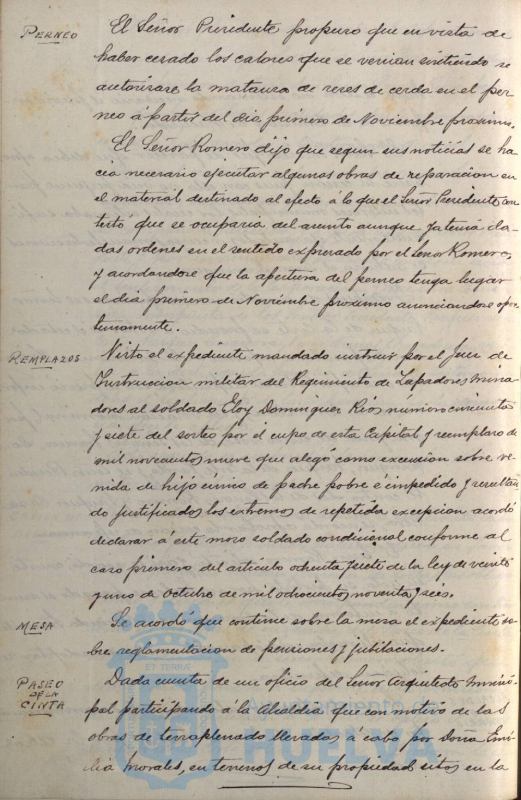 PERNEO
El Señor Presidente propuso que en vista de
haber cesado los calores que se venian sintiendo se
autorizase la matanza de reses de cerda en el per-
neo á partir del dia primero de Noviembre proximo.
El Señor Romero dijo que segun sus noticias se ha-
cia necesario ejecutar algunas obras de reparacion en
el material destinado al efecto á lo que el Señor Presidente con-
testó que se ocuparia del asunto aunque ya tenia da-
das ordenes en el sentido expresado por el Señor Romero,
y acordandose que la apertura del perneo tenga lugar
el dia primero de Noviembre proximo anunciandose opor-
tunamente.
REMPLAZOS
Visto el expediente mandado instruir por el Juez de
Instruccion militar del Regimiento de Zapadores Mina-
dores al soldado Eloy Dominguez Rios número cincuenta
y siete del sorteo por el cupo de esta Capital y reemplazo de
mil novecientos nueve que alegó como excepcion sobreve-
nida de hijo único de padre pobre é impedido y resultan-
do justificados los extremos de repetida excepcion acordó
declarar á este mozo soldado condicional conforme al
caso primero del articulo ochenta y siete de la ley de veinti
y uno de Octubre de mil ochocientos noventa y seis.
MESA
Se acordó que continue sobre la mesa el expediente so-
bre reglamentacion de pensiones y jubilaciones.
PASEO
DE LA
CINTA
Dada cuenta de un oficio del Señor Arquitecto Munici-
pal participando á la Alcaldia que con motivo de las
obras de terraplenado llevadas á cabo por Doña Emi-
lia Morales, en terrenos de su propiedad sitos en la
ET TERRÆ
Ayuntamiento
HUELVA